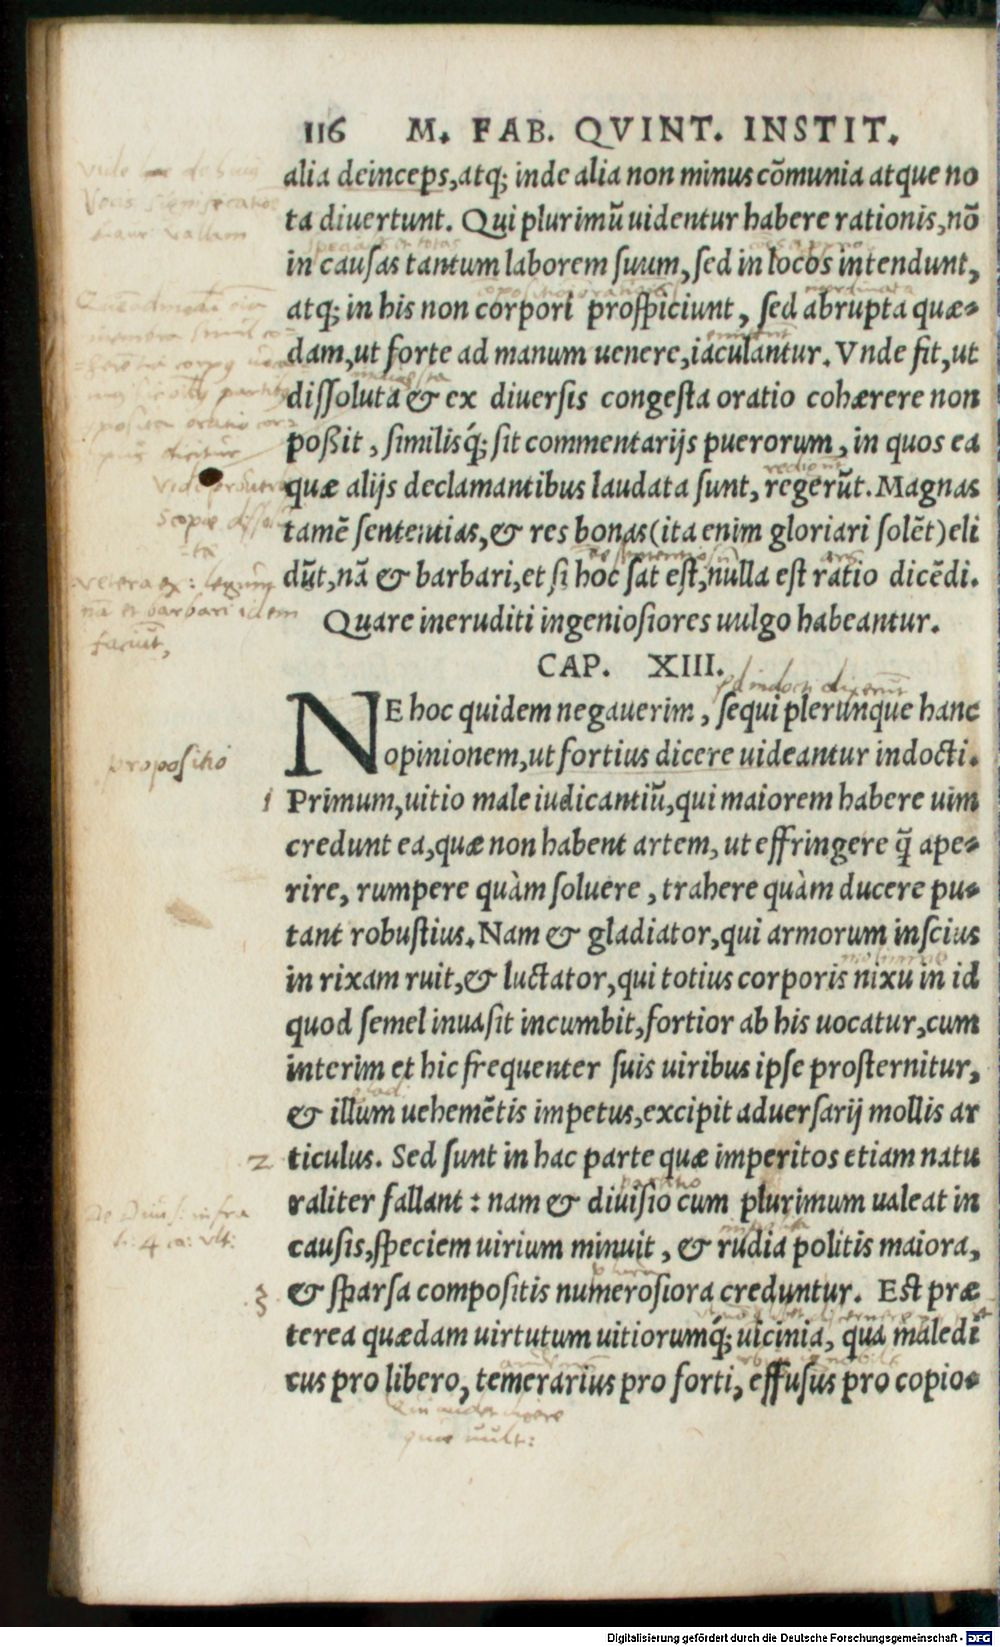 116 M. FAB. QVINT. INSTIT.
alia deinceps, atq; inde alia non minus cõmunia atque no
ta diuertunt. Qui plurimũ uidentur habere rationis, nõ
in causas tantum laborem suum, sed in locos intendunt,
atq; in his non corpori prospiciunt, sed abrupta quæ-
dam, ut forte ad manum uenere, iaculantur. Vnde fit, ut
dissoluta & ex diuersis congesta oratio cohærere non
poßit, similisq́; sit commentarijs puerorum, in quos ea
quæ alijs declamantibus laudata sunt, regerũt. Magnas
tamẽ sententias, & res bonas (ita enim gloriari solẽt) eli
dũt, nã & barbari, et si hoc sat est, nulla est ratio dicẽdi.
Quare ineruditi ingeniosiores uulgo habeantur.
CAP. XIII.
NE hoc quidem negauerim, sequi plerunque hanc
opinionem, ut fortius dicere uideantur indocti.
propositio
1 Primum, uitio male iudicantiũ, qui maiorem habere uim
credunt ea, quæ non habent artem, ut effringere q̃ ape-
rire, rumpere quàm soluere, trahere quàm ducere pu-
tant robustius. Nam & gladiator, qui armorum inscius
in rixam ruit, & luctator, qui totius corporis nixu in id
quod semel inuasit incumbit, fortior ab his uocatur, cum
interim et hic frequenter suis uiribus ipse prosternitur,
& illum uehemẽtis impetus, excipit aduersarij mollis ar
2 ticulus. Sed sunt in hac parte quæ imperitos etiam natu
raliter fallant: nam & diuisio cum plurimum ualeat in
causis, speciem uirium minuit, & rudia politis maiora,
3 & sparsa compositis numerosiora creduntur. Est præ
terea quædam uirtutum uitiorumq́; uicinia, qua maledi
cus pro libero, temerarius pro forti, effusus pro copio-
Digitalisierung gefördert durch die Deutsche Forschungsgemeinschaft - DFG